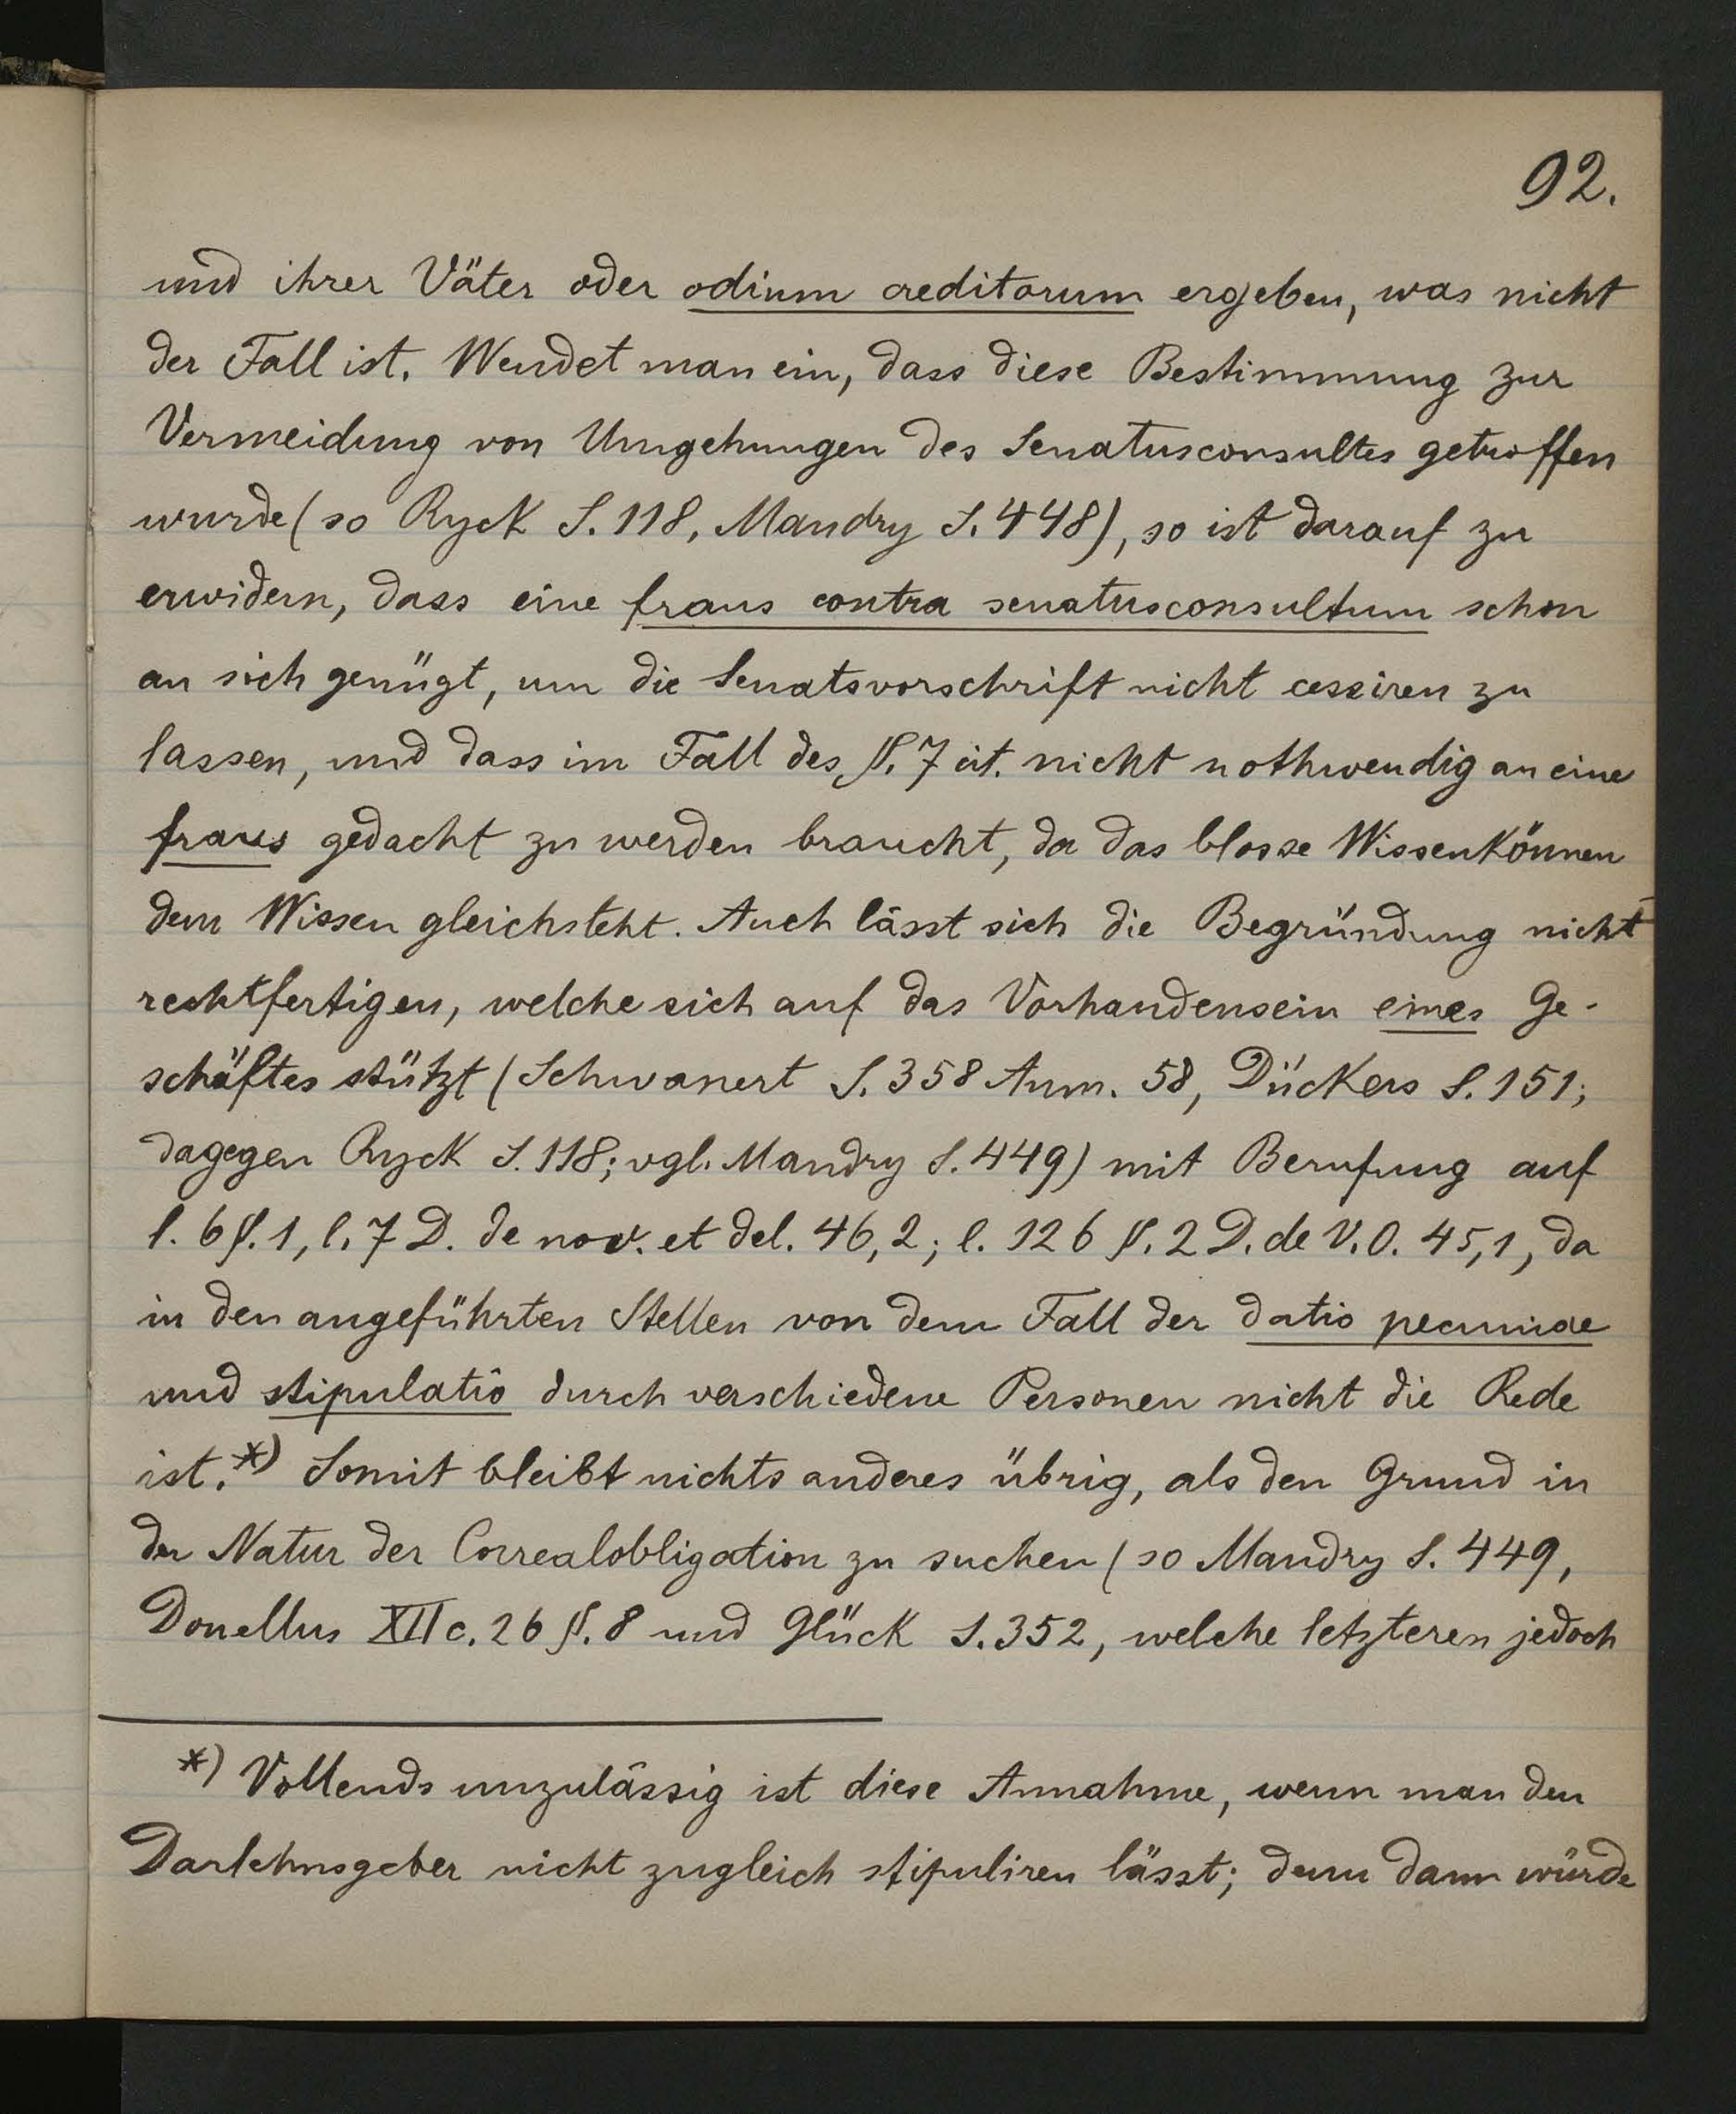 92.
und ihrer Väter oder odium creditorum ergeben, was nicht
der Fall ist. Wendet man ein, dass diese Bestimmung zur
Vermeidung von Umgehungen des Senatusconsultes getroffen
wurde (so Ryck S. 118, Mandry S. 448), so ist darauf zu
erwidern, dass eine fraus contra senatusconsultum schon
an sich genügt, um die Senatsvorschrift nicht cessiren zu
lassen, und dass im Fall des §. 7 cit. nicht nothwendig an eine
fraus gedacht zu werden braucht, da das blosse Wissenkönnen
dem Wissen gleichsteht. Auch lässt sich die Begründung nicht
rechtfertigen, welche sich auf das Vorhandensein eines Ge-
schäftes stützt (Schwanert S. 358 Anm. 58, Dückers S. 151;
dagegen Ryck S. 118; vgl. Mandry S. 449) mit Berufung auf
l. 6 §. 1, l. 7 D. de nov. et del. 46,2; l. 126 §. 2 D. de V. O. 45,1, da
in den angeführten Stellen von dem Fall der datio pecuniae
und stipulatio durch verschiedene Personen nicht die Rede
ist.*) Somit bleibt nichts anderes übrig, als den Grund in
der Natur der Correalobligation zu suchen (so Mandry S. 449,
Donellus XII c. 26 §. 8 und Glück S. 352, welche letzteren jedoch
*) Vollends unzulässig ist diese Annahme, wenn man den
Darlehnsgeber nicht zugleich stipuliren lässt; denn dann würde